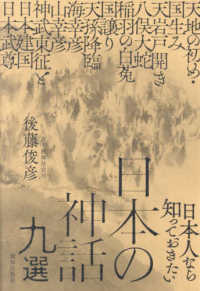 天地の初め・
国生み
天岩戸開き
八俣大蛇
稲羽の白兎
国譲り
天孫降臨
海幸彦
山幸彦
神武東征と
日本建国
日本武尊
日本人なら
知っておきたい
日本の
神話
九選
後藤俊彦